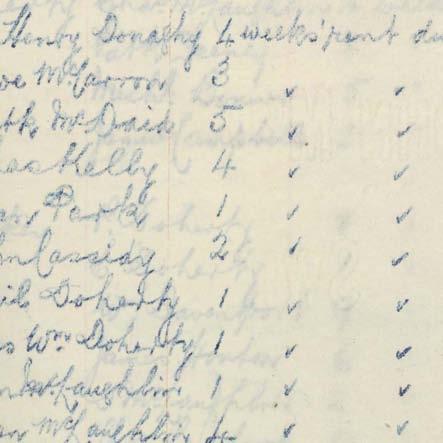 Henry Donaghy 4 weeks' rent du
McCarron 3 " "
McDaid 5 " "
Kelly 4 " "
Park 1 " "
Cassidy 2 " "
Doherty 1 " "
s Wm Doherty 1 " "
McLaughlin 1 " "
McLaughlin 4 " "